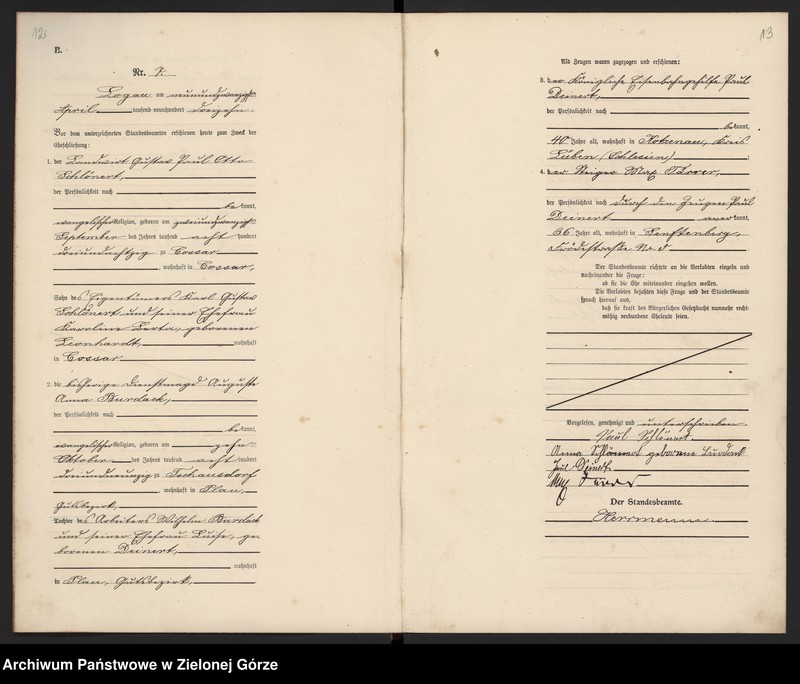 12
B.
Nr. 7.
Logau am neunundzwanzigsten
April tausend neunhundert dreizehn.
Vor dem unterzeichneten Standesbeamten erschienen heute zum Zweck der
Eheschließung:
1. der Landwirt Gustav Paul Otto
Schlönert,
der Persönlichkeit nach
be kannt,
evangelischer Religion, geboren am zweiundzwanzigsten
September des Jahres tausend acht hundert
dreiundachtzig zu Cossar
, wohnhaft in Cossar,
Sohn des Eigentümers Karl Gustav
Schlönert und seiner Ehefrau
Karoline Berta, geborenen
Leonhardt, wohnhaft
in Cossar
2. die bisherige Dienstmagd Auguste
Anna Burdack,
der Persönlichkeit nach
be kannt,
evangelischer Religion, geboren am zehn-
Oktober des Jahres tausend acht hundert
dreiundneunzig zu Tschausdorf
, wohnhaft in Plau,
Gutsbezirk,
Tochter des Arbeiters Wilhelm Burdack
und seiner Ehefrau Luise, ge
borenen Deinert,
wohnhaft
in Plau, Gutsbezirk,
13
Als Zeugen waren zugezogen und erschienen:
3. der Königliche Eisenbahngehilfe Paul
Deinert,
der Persönlichkeit nach
be kannt,
40 Jahre alt, wohnhaft in Kotzenau, Kreis
Lüben (Schlesien)
4. der Steiger Max
der Persönlichkeit nach durch den Zeugen Paul
Deinert aner kannt,
36 Jahre alt, wohnhaft in Senftenberg,
Der Standesbeamte richtete an die Verlobten einzeln und
nacheinander die Frage:
ob sie die Ehe miteinander eingehen wollen.
Die Verlobten bejahten diese Frage und der Standesbeamte
sprach hierauf aus,
daß sie kraft des Bürgerlichen Gesetzbuchs nunmehr recht-
mäßig verbundene Eheleute seien.
Vorgelesen, genehmigt und unterschrieben.
Paul Schlönert
Anna Schlönert geborene Burdack
Paul Deinert
Max
Der Standesbeamte.
Herrmann.
Archiwum Państwowe w Zielonej Górze